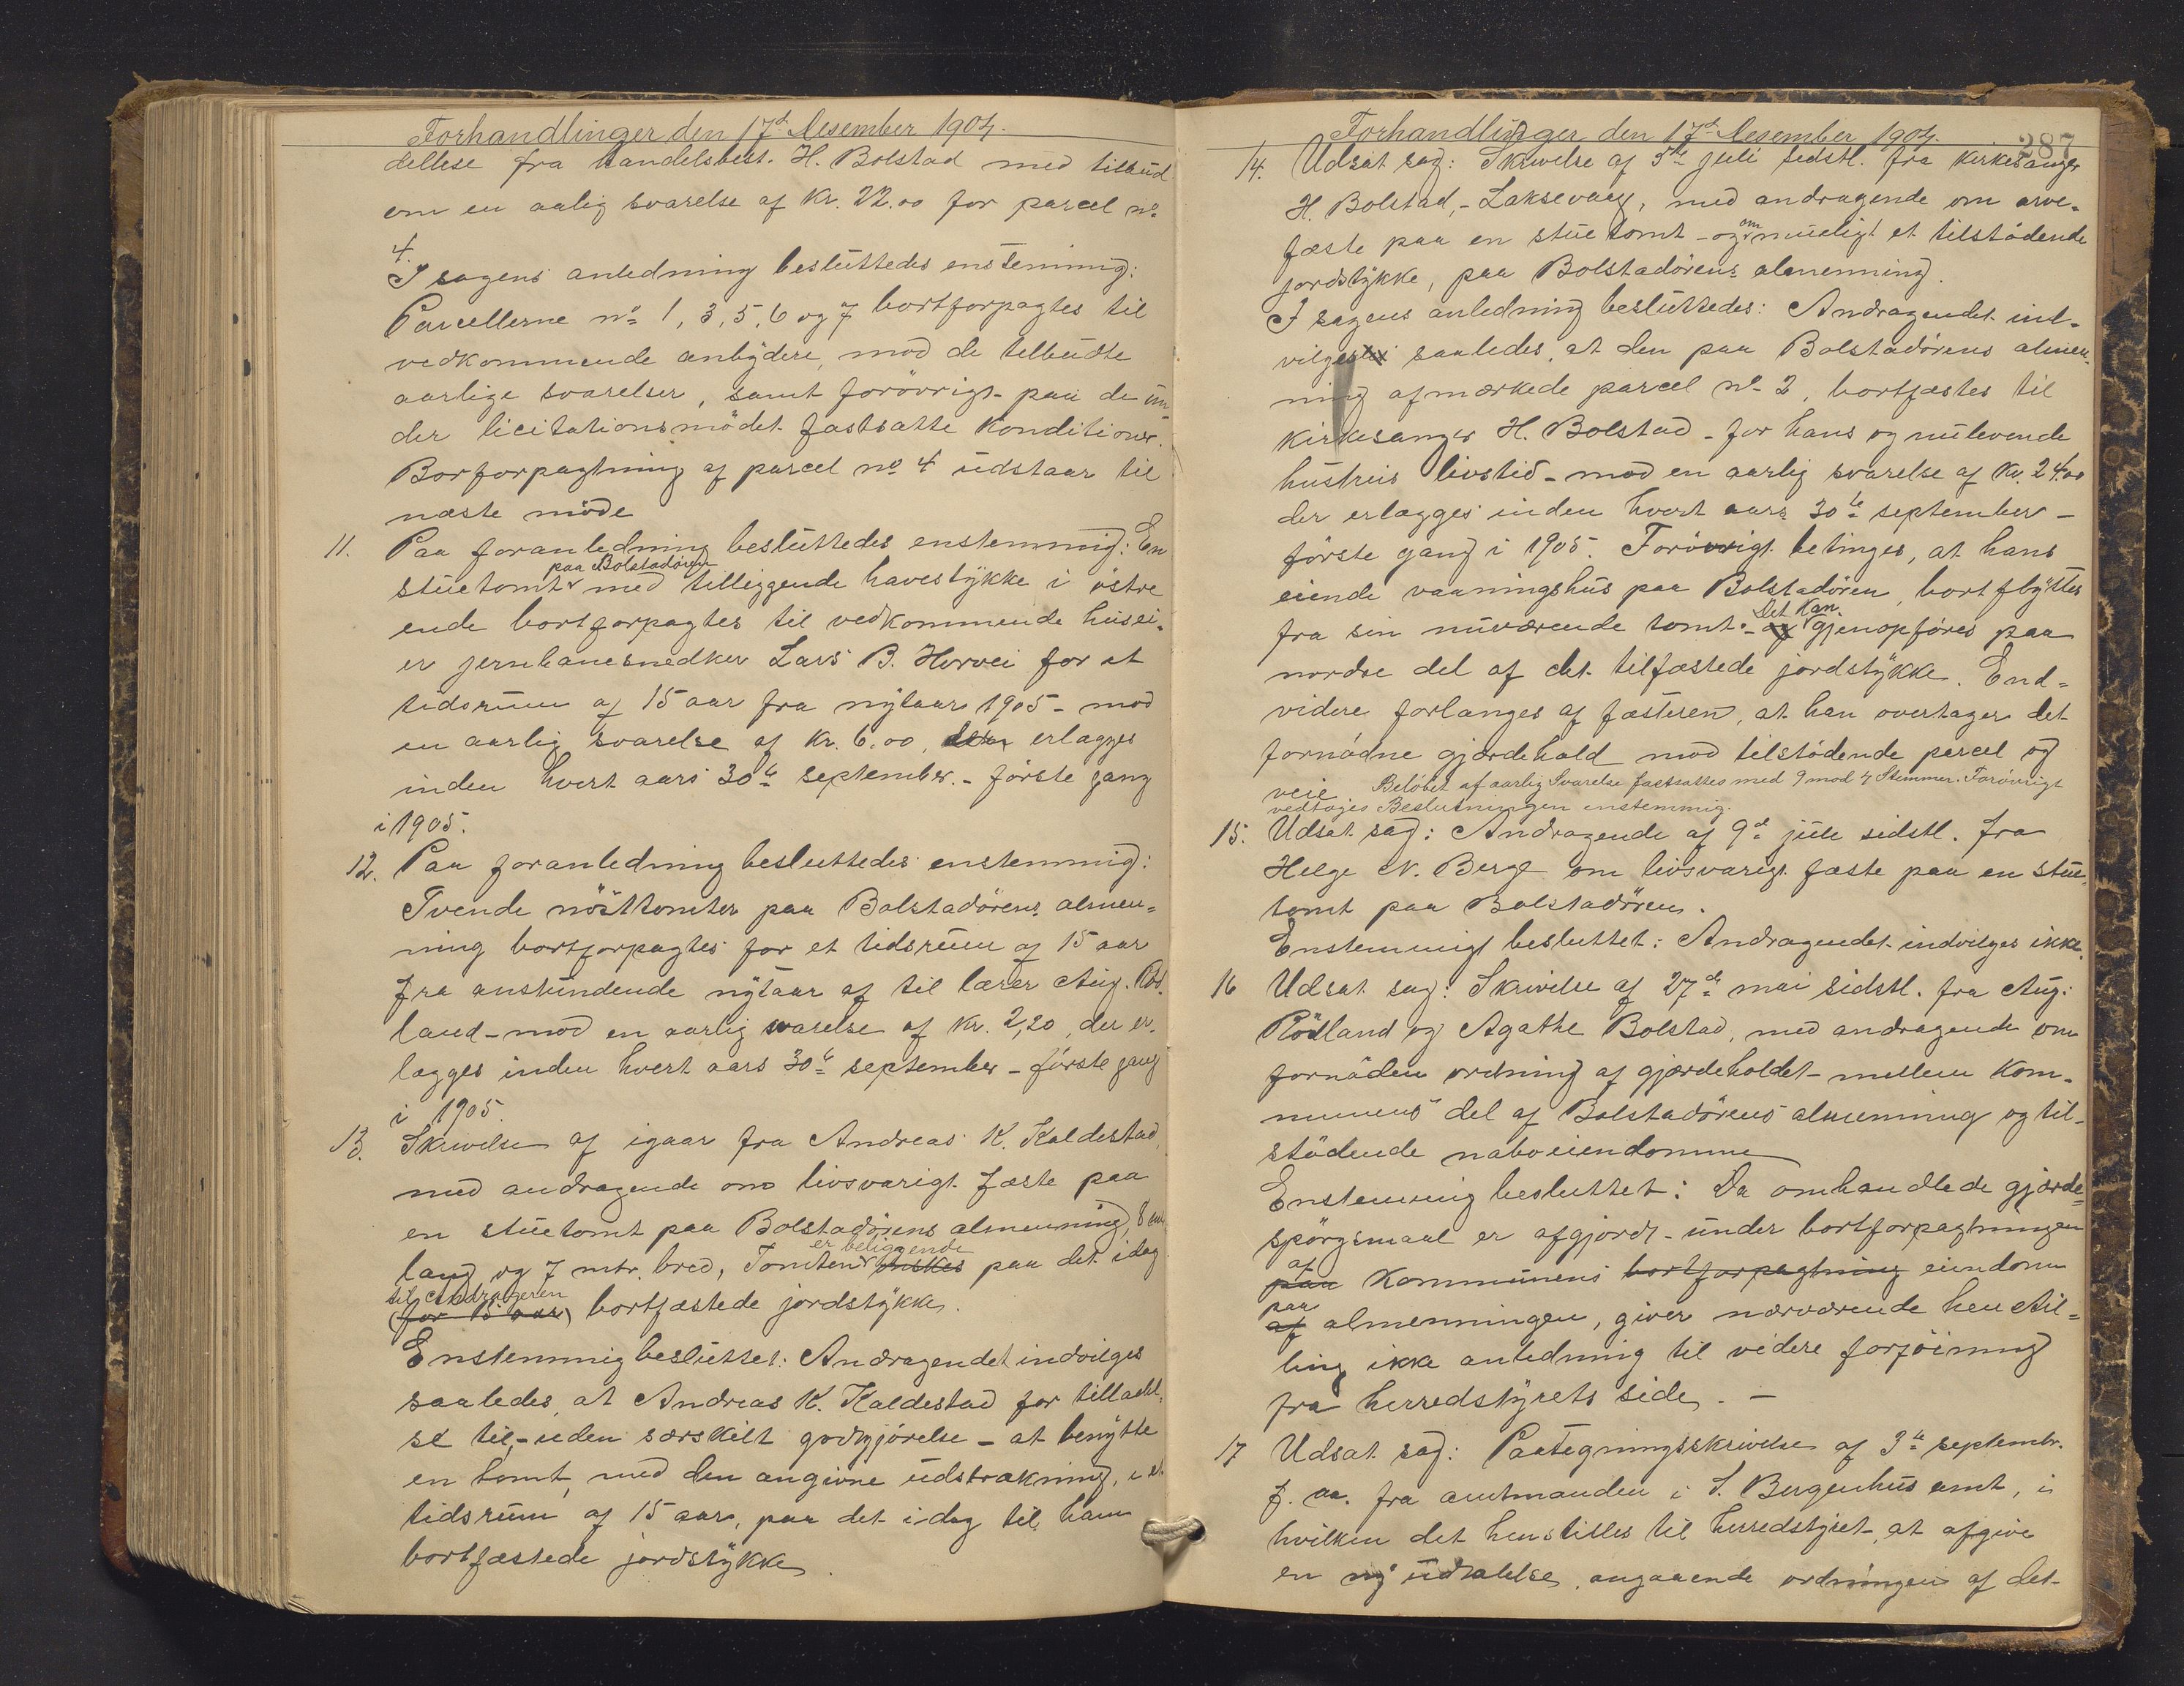 Forhandlinger den 17d Desember 1904.
dellese fra handelsbest. H. Bolstad med tilbud
om en aalig svarelse af Kr. 22.00 for parcel no
4.
I sagens anledning besluttedes enstemmig:
Parcellerne no 1, 3, 5, 6 og 7 bortforpagtes til
vedkommende anbydere, mod de tilbudte
aarlige svarelser, samt forövrigt paa de un-
der licitationsmödet fastsatte Konditioner.
Borforpagtning af parcel no 4 udstaar til
næste möde
11. Paa foranledning besluttedes enstemmig: En
paa Bolstadören
stuetomt med tilliggende havestykke i östre
ende bortforpagtes til vedkommende husei-
er jernbanesnedker Lars B. Horvei for et
tidsrum af 15 aar fra nytaar 1905 - mod
en aarlig svarelse af Kr. 6.00, erlægges
inden hvert aars 30te september. - förste gang
i 1905.
12. Paa foranledning besluttedes enstemmig:
Tvende nösttomter paa Bolstadörens almen-
ning bortforpagtes for et tidsrum af 15 aar
fra anstundende nytaar af til lærer Aug. Röd-
land - mod en aarlig svarelse af Kr. 2,20, der er-
lægges inden hvert aars 30te september - förste gang
i 1905.
13. Skrivelse af igaar fra Andreas K. Kaldestad,
med andragende om livsvarigt fæste paa
en stuetomt paa Bolstadörens almenning, 8 mtr
lang og 7 mtr. bred, Tomten önskes paa det idag
er beliggende
til Andrageren
(for 15 aar) bortfæstede jordstykke.
Enstemmig besluttet: Andragendet indvilges
saaledes, at Andreas K. Kaldestad for tilladel-
se til, - uden særskilt godtgjörelse - at benytte
en tomt, med den angivne udstrækning, i et
tidsrum af 15 aar, paa det idag til ham
bortfæstede jordstykke.
Forhandlinger den 17d Desember 1904.
287
14. Udsat sag: Skrivelse af 5te juli sidstl. fra Kirkesanger
H. Bolstad, - Laksevaag, med andragende om arve-
fæste paa en stuetomt - og om mueligt et tilstödende
jordstykke, paa Bolstadörens almenning.
I sagens anledning besluttedes: Andragendet ind-
vilges saaledes, at den paa Bolstadörens almen-
ning afmærkede parcel no 2, bortfæstes til
Kirkesanger H. Bolstad - for hans og nulevende
hustrus livstid - mod en aarlig svarelse af Kr. 24.00
der erlægges inden hvert aars 30te september -
förste gang i 1905. Forövrigt betinges, at hans
eiende vaaningshus paa Bolstadören, bortflyttes
Det Kan
fra sin nuværende tomt. - og gjenopföres paa
nordre del af det tilfæstede jordstykke. End-
videre forlanges af fæsteren, at han overtager det
fornödne gjærdehold mod tilstödende parcel og
veie. Belöbet af aarlig Svarelse fastsattes med 9 mod 4 Stemmer. Forövrigt
vedtoges Beslutningen enstemmig.
15. Udsat sag: Andragende af 9d juli sidstl. fra
Helge N. Berge om livsvarigt fæste paa en stue-
tomt paa Bolstadören.
Enstemmigt besluttet: Andragendet indvilges ikke.
16 Udsat sag: Skrivelse af 27de mai sidstl. fra Aug.
Rödland og Agathe Bolstad, med andragende om
fornöden ordning af gjærdeholdet - mellem Kom-
munens del af Bolstadörens almenning og til-
stödende naboeiendomme
Enstemmig besluttet: Da omhandlede gjærde-
spörgsmaal er afgjordt - under bortforpagtningen
af
paa Kommunens bortforpagtning eiendom
paa
af almenningen, giver nærværende henstil-
ling ikke anledning til videre forföining
fra herredstyrets side. -
17 Udsat sag: Paategningsskrivelse af 3de septembr.
f. aa. fra amtmanden i S. Bergenhus amt, i
hvilken det henstilles til herredstyret, at afgive
en ny udtalelse, angaaende ordningen af det